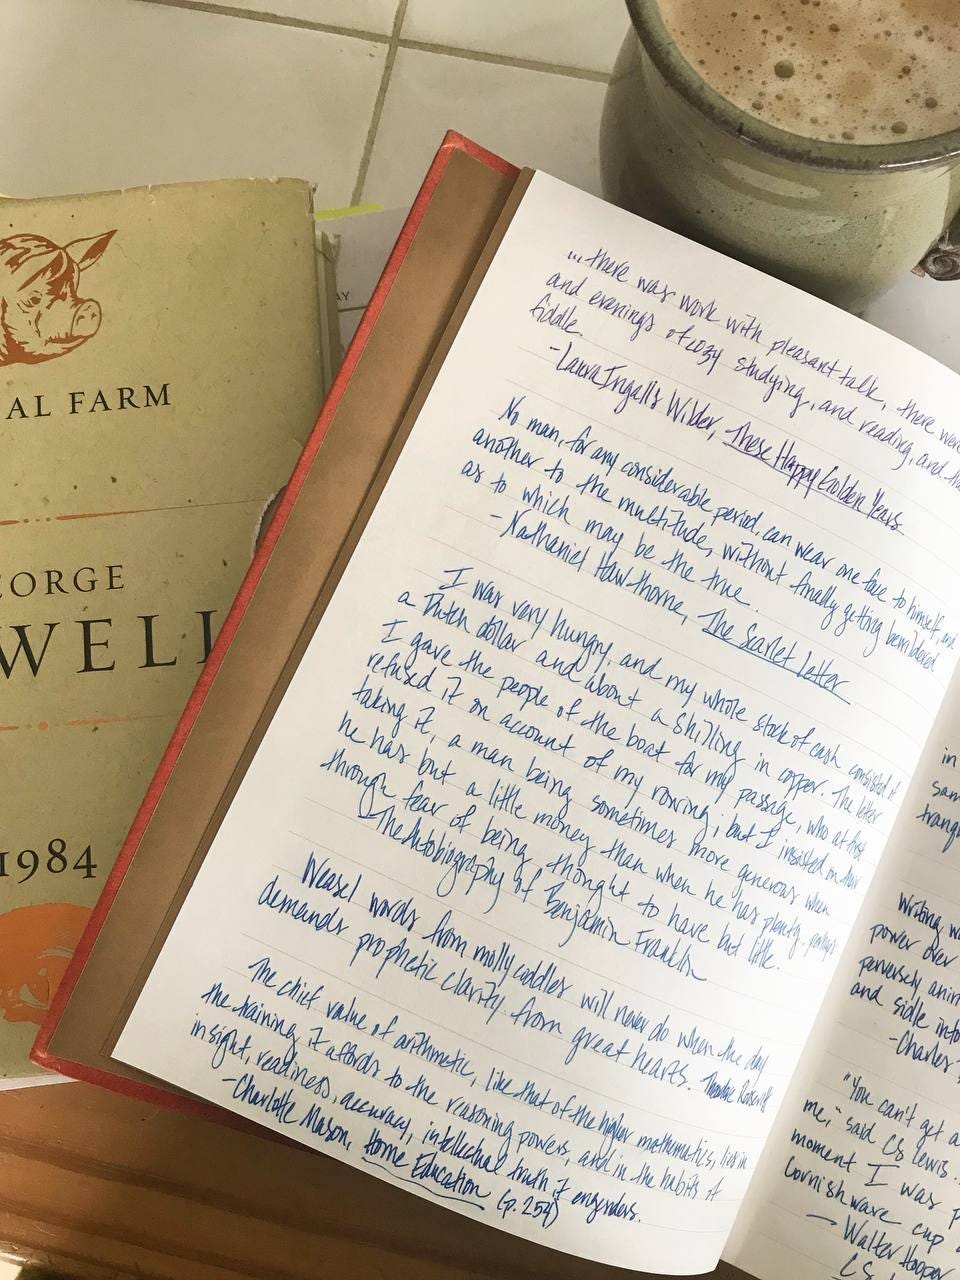 AL FARM
EORGE
WELL
1984
AY
...there was work with pleasant talk, there were
and evenings of cozy studying, and reading, and the
fiddle
-Laura Ingalls Wilder, These Happy Golden Years
No man, for any considerable period, can wear one face to himself, and
another to the multitude, without finally getting bewildered
as to which may be the true.
-Nathaniel Hawthorne, The Scarlet Letter
I was very hungry, and my whole stock of cash consisted of
a Dutch dollar and about a shilling in copper. The latter
I gave the people of the boat for my passage, who at first
refused it on account of my rowing; but I insisted on their
taking it, a man being sometimes more generous when
he has but a little money than when he has plenty, perhaps
through fear of being thought to have but little.
-The Autobiography of Benjamin Franklin
Weasel words from molly coddles will never do when the day
demands prophetic clarity from great hearts. Theodore Roosevelt
The chief value of arithmetic, like that of the higher mathematics, lies in
the training it affords to the reasoning powers, and in the habits of
insight, readiness, accuracy, intellectual truth it engenders.
-Charlotte Mason, Home Education (p. 254)
in
sam
tranqu
Writing, wa
power over
perversely anim
and sidle into
-Charles
"You can't get a
me," said CS Lewis.
moment I was p
Cornishware cup
-Walter Hooper
C.S.